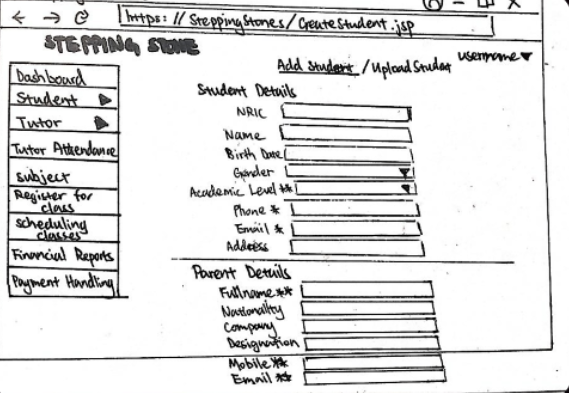 https://SteppingStones/CreateStudent.jsp
STEPPING STONE
username
Add Student / Upload Student
Dashboard
Student
Tutor
Tutor Attendance
subject
Register for
class
scheduling
classes
Financial Reports
Payment Handling
Student Details
NRIC
Name
Birth Date
Gender
Academic Level **
Phone *
Email *
Address
Parent Details
Fullname **
Nationality
Company
Designation
Mobile **
Email **